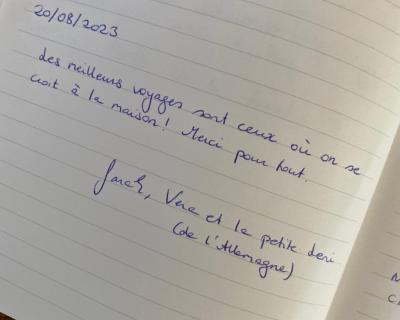 20/08/2023
des meilleurs voyages sont ceux où on se
croit à la maison! Merci pour tout.
Sarah, Vera et la petite deni
(de l'Allemagne)